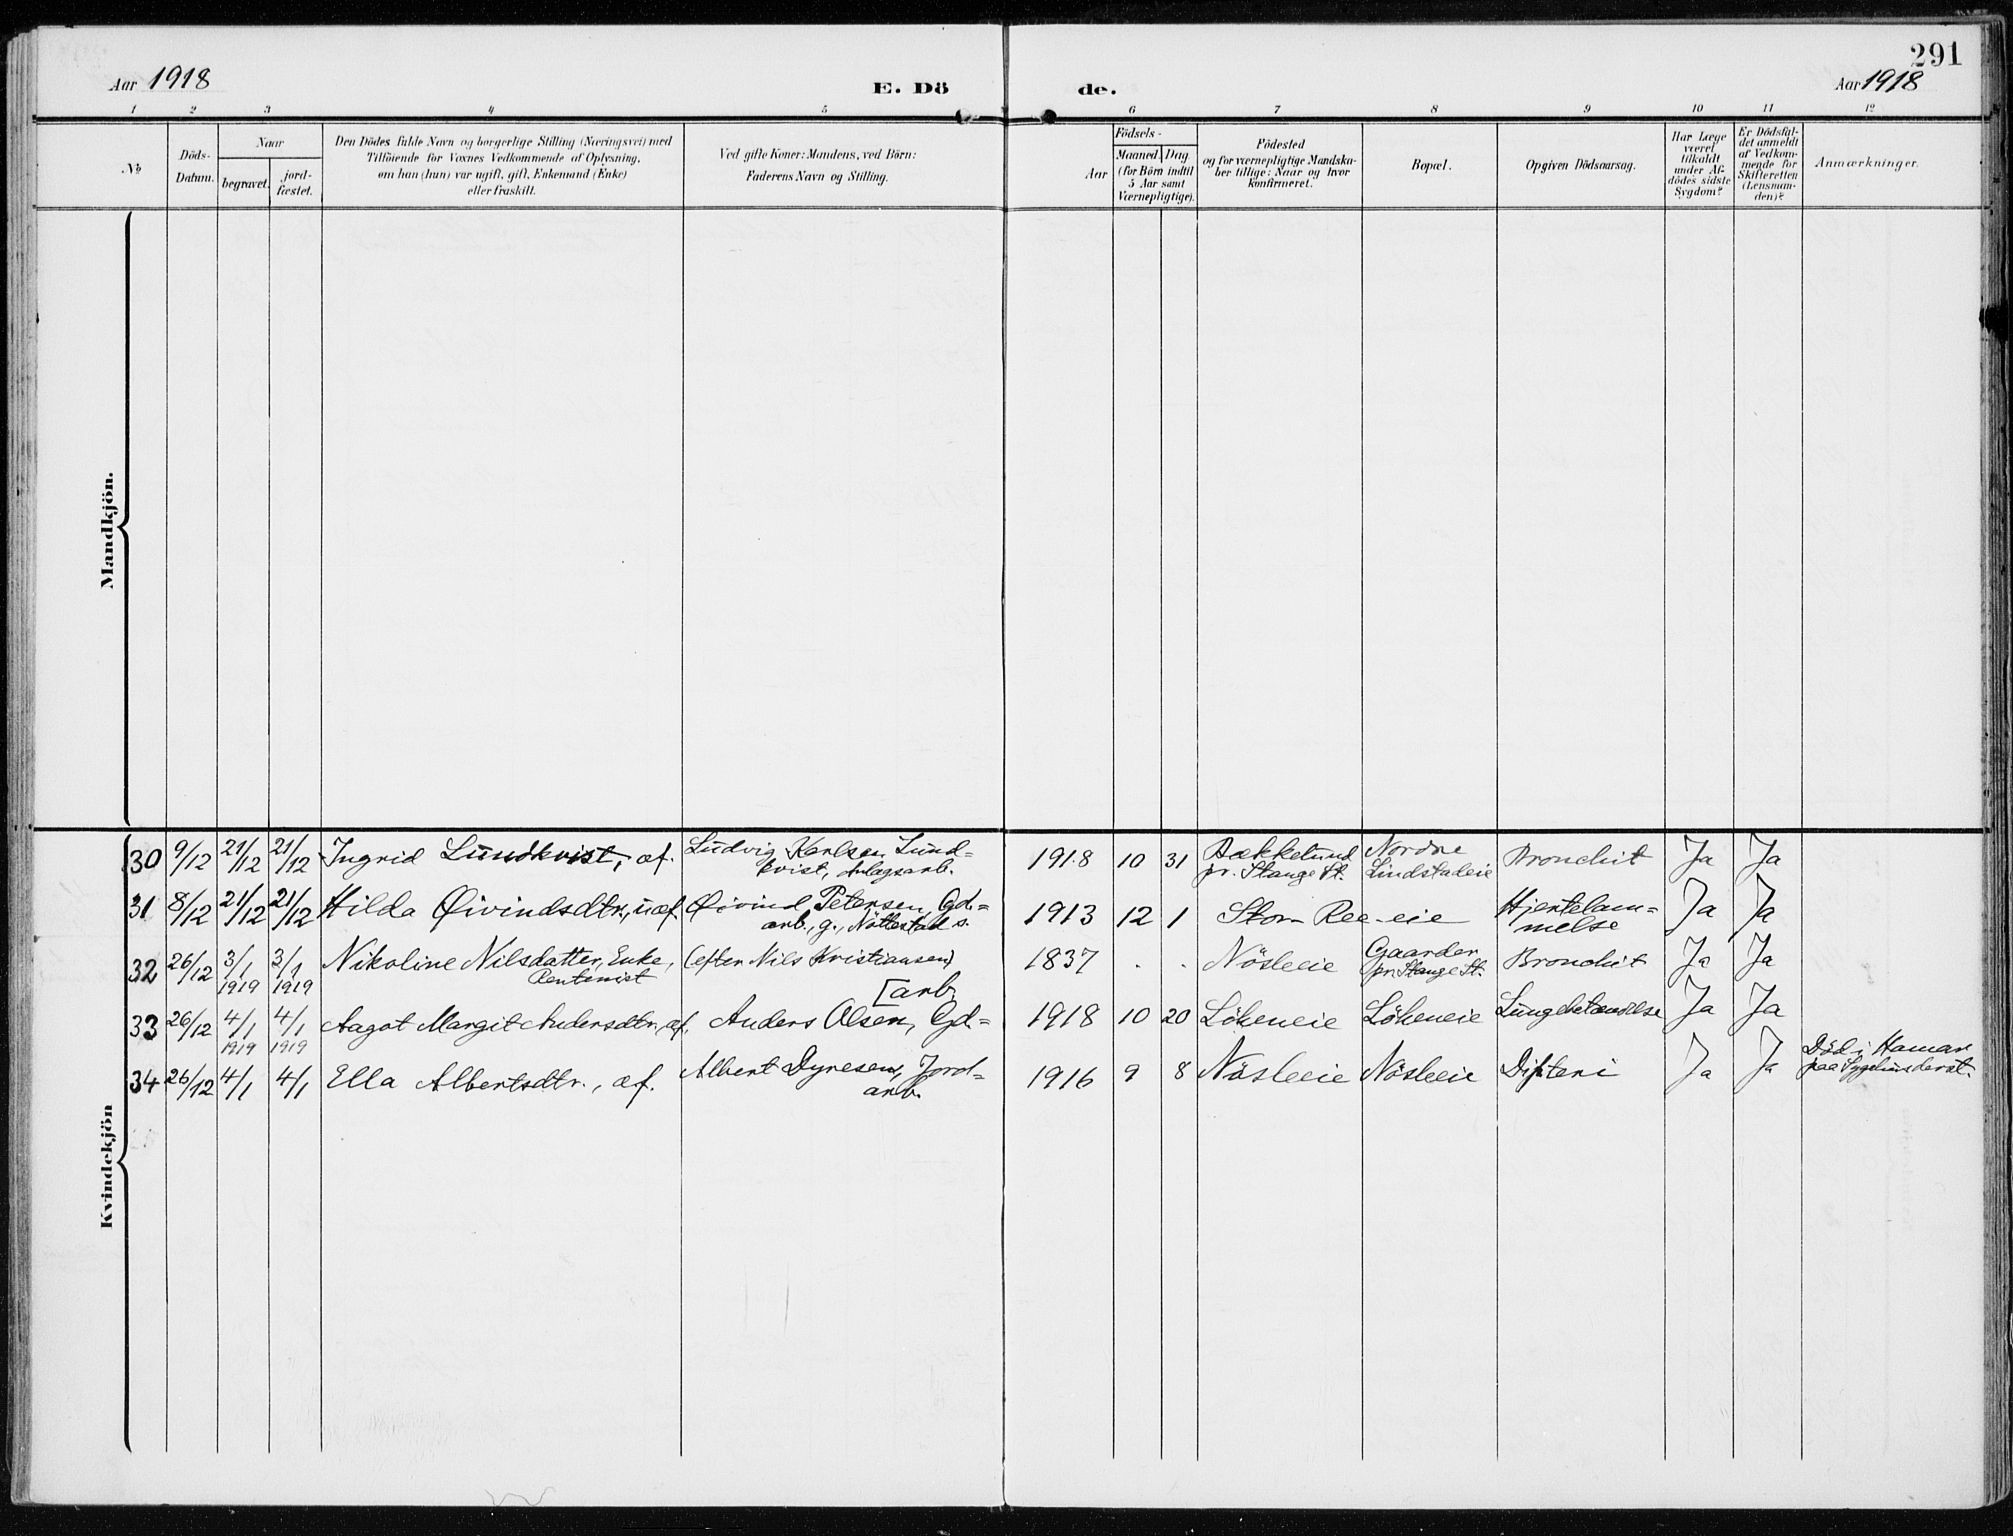 291
Aar 1918
E. Dö
de.
Aar 1918
1 2 3 4 5 6 7 8 9 10 11 12
№
Döds-
Datum.
Naar
begravet.
jord-
fæstet.
Den Dödes fulde Navn og borgerlige Stilling (Næringsvei) med
Tilföiende for Voxnes Vedkommende af Oplysning,
om han (hun) var ugift, gift, Enkemand (Enke)
eller fraskilt.
Ved gifte Koner: Mandens, ved Börn:
Faderens Navn og Stilling.
Aar
Födsels-
Maaned. Dag
(for Börn indtil
5 Aar samt
Værnepligtige).
Födested
og for værnepligtige Mandska-
ber tillige: Naar og hvor
konfirmeret.
Bopæl.
Opgiven Dödsaarsag.
Har Læge
været
tilkaldt
under Af-
dödes sidste
Sygdom?
Er Dödsfal-
det anmeldt
af Vedkom-
mende for
Skifteretten
(Lensman-
den)?
Anmærkninger.
Mandkjön.
Kvindekjön
30 9/12 21/12 21/12 Ingrid Lundkvist, af. Ludvig Karlsen Lund-
kvist, Anlagsarb.
1918 10 31 Bækkelund
pr. Stange St.
Nordre
Lindstadeie
Bronchit Ja Ja
31 8/12 21/12 21/12 Hilda Øivindsdtr., uæf. Øivind Petersen, Gd-
arb., g., Nöttestad s.
1913 12 1 Store Ree-eie Hjertelam-
melse
Ja Ja
32 26/12 3/1 3/1 Nikoline Nilsdatter, Enke, (efter Nils Kristiansen)
1919 1919 Rentenist
1837 . . Nösleeie Gaarder
pr. Stange St.
Bronchit Ja Ja
[arb.
33 26/12 4/1 4/1 Aagot Margit Andersdtr., af. Anders Olsen, Gd-
1919 1919
1918 10 20 Lökeneie Lökeneie Lungebetændelse Ja Ja
34 26/12 4/1 4/1 Ella Albertsdtr., æf. Albert Dyresen, Jord-
arb.
1916 9 8 Nösleeie Nösleeie Difteri Ja Ja Död i Hamar
paa Sygehus derst.